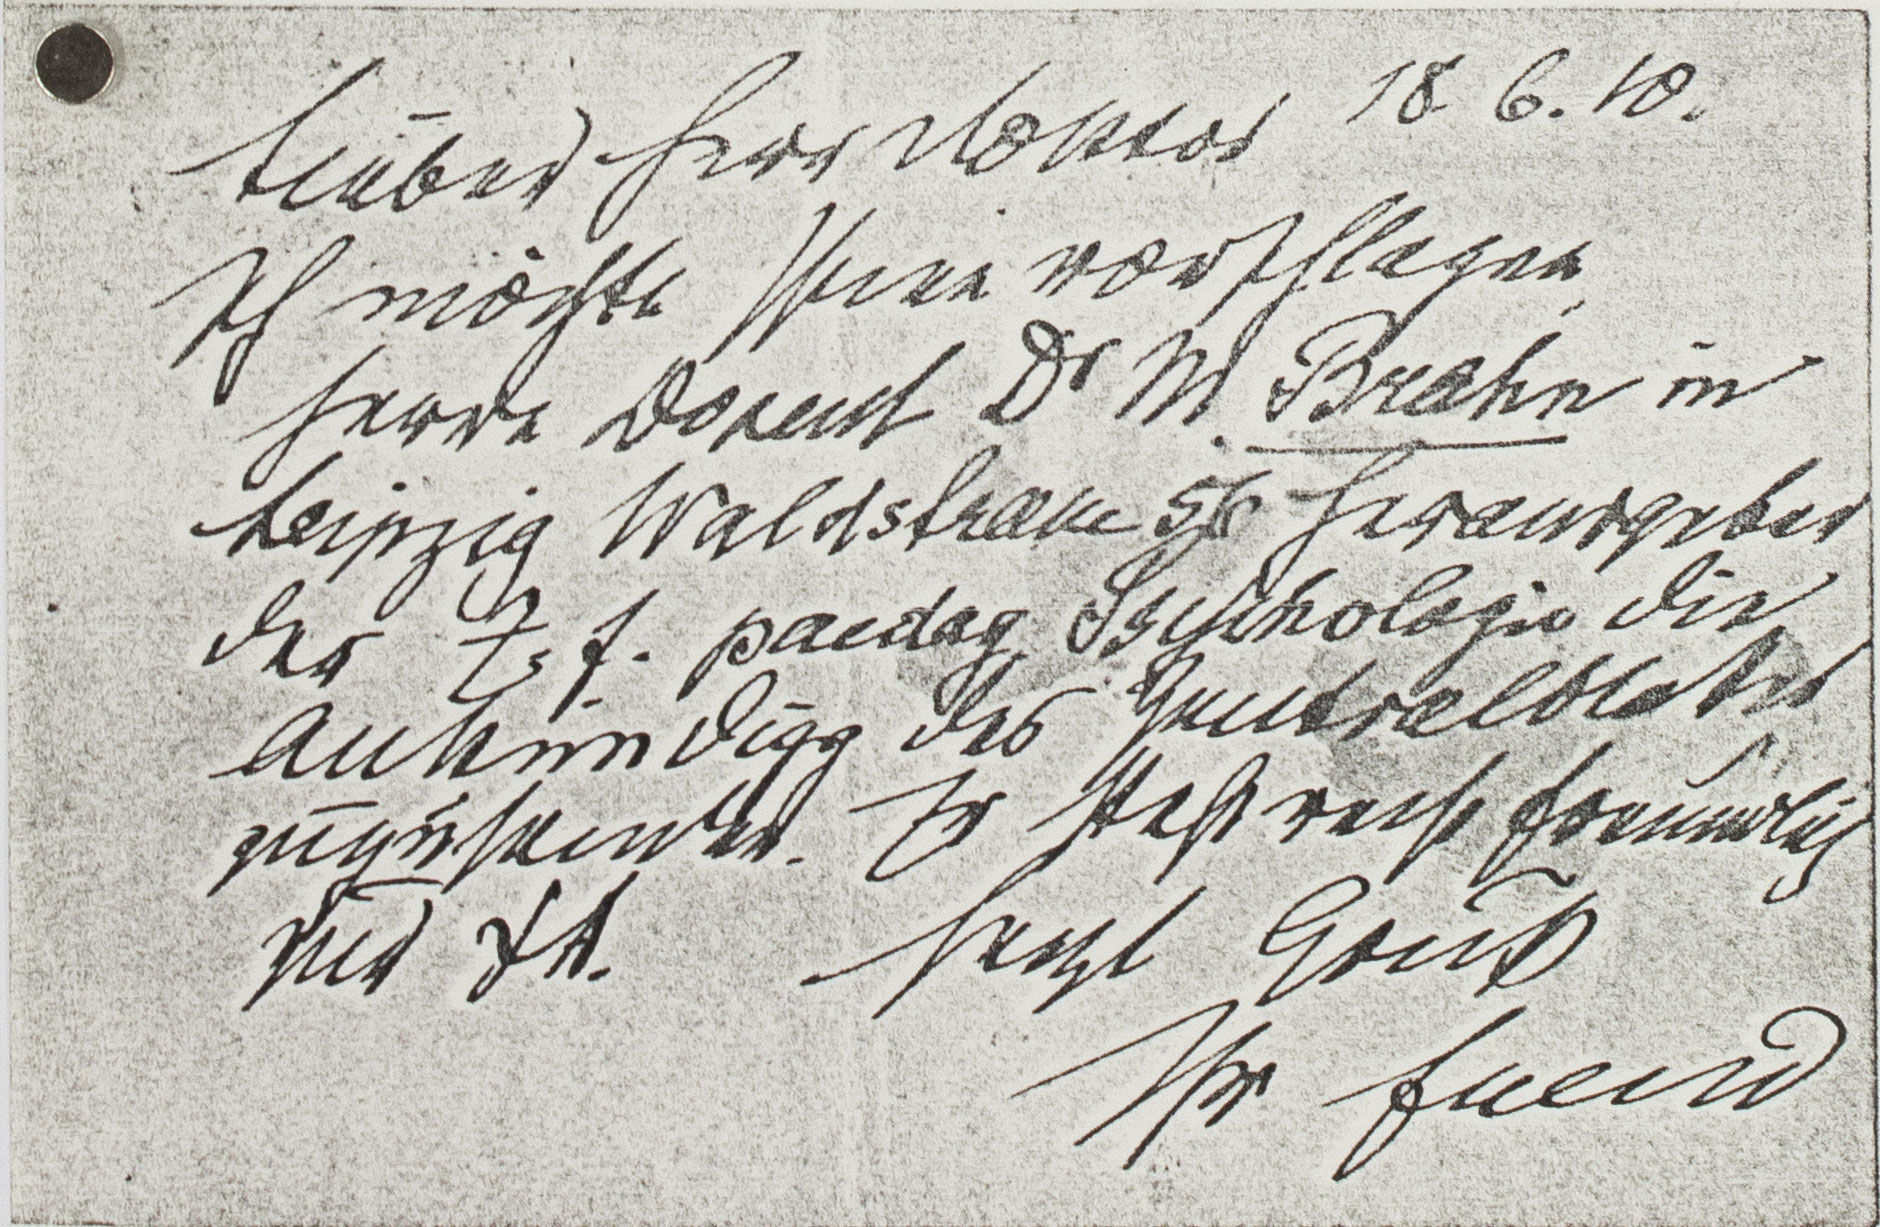 18. 6. 10.
Lieber Herr Doktor
Ich möchte Ihnen vorschlagen,
Herrn Dozent Dr M. Brahn in
Leipzig Waldstrasse 56 Herausgeber
der Ztsf. paedag Psychologie die
Ankündigg des Zentralblattes
zuzusenden. Er steht recht freundlich
zur ΨA. Herzl Gruß
Ihr Freud